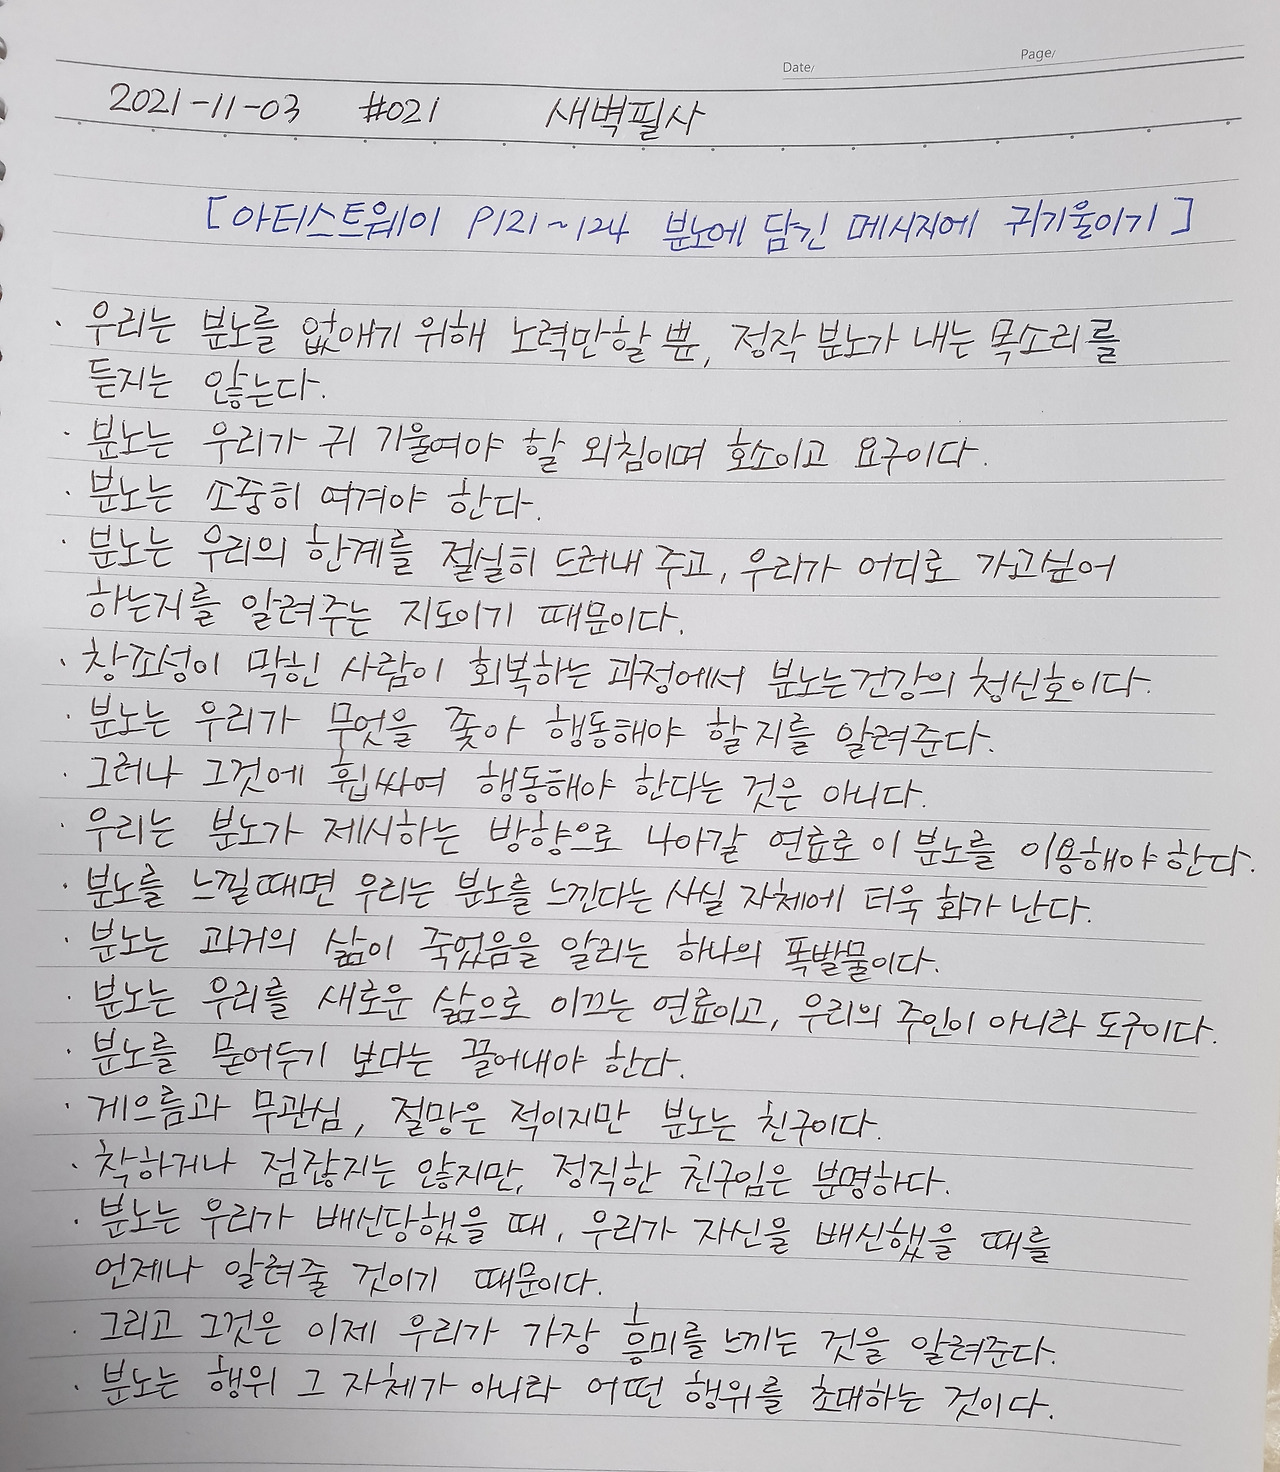 Date/
Page/
2021-11-03 #021 새벽필사
[아티스트웨이 P121~124 분노에 담긴 메시지에 귀기울이기]
· 우리는 분노를 없애기 위해 노력만할 뿐, 정작 분노가 내는 목소리를
듣지는 않는다.
· 분노는 우리가 귀 기울여야 할 외침이며 호소이고 요구이다.
· 분노는 소중히 여겨야 한다.
· 분노는 우리의 한계를 절실히 드러내 주고, 우리가 어디로 가고싶어
하는지를 알려주는 지도이기 때문이다.
· 창조성이 막힌 사람이 회복하는 과정에서 분노는 건강의 청신호이다.
· 분노는 우리가 무엇을 쫓아 행동해야 할 지를 알려준다.
· 그러나 그것에 휩싸여 행동해야 한다는 것은 아니다.
· 우리는 분노가 제시하는 방향으로 나아갈 연료로 이 분노를 이용해야 한다.
· 분노를 느낄때면 우리는 분노를 느낀다는 사실 자체에 더욱 화가 난다.
· 분노는 과거의 삶이 죽었음을 알리는 하나의 폭발물이다.
· 분노는 우리를 새로운 삶으로 이끄는 연료이고, 우리의 주인이 아니라 도구이다.
· 분노를 묻어두기 보다는 끌어내야 한다.
· 게으름과 무관심, 절망은 적이지만 분노는 친구이다.
· 착하거나 점잖지는 않지만, 정직한 친구임은 분명하다.
· 분노는 우리가 배신당했을 때, 우리가 자신을 배신했을 때를
언제나 알려줄 것이기 때문이다.
· 그리고 그것은 이제 우리가 가장 흥미를 느끼는 것을 알려준다.
· 분노는 행위 그 자체가 아니라 어떤 행위를 초대하는 것이다.